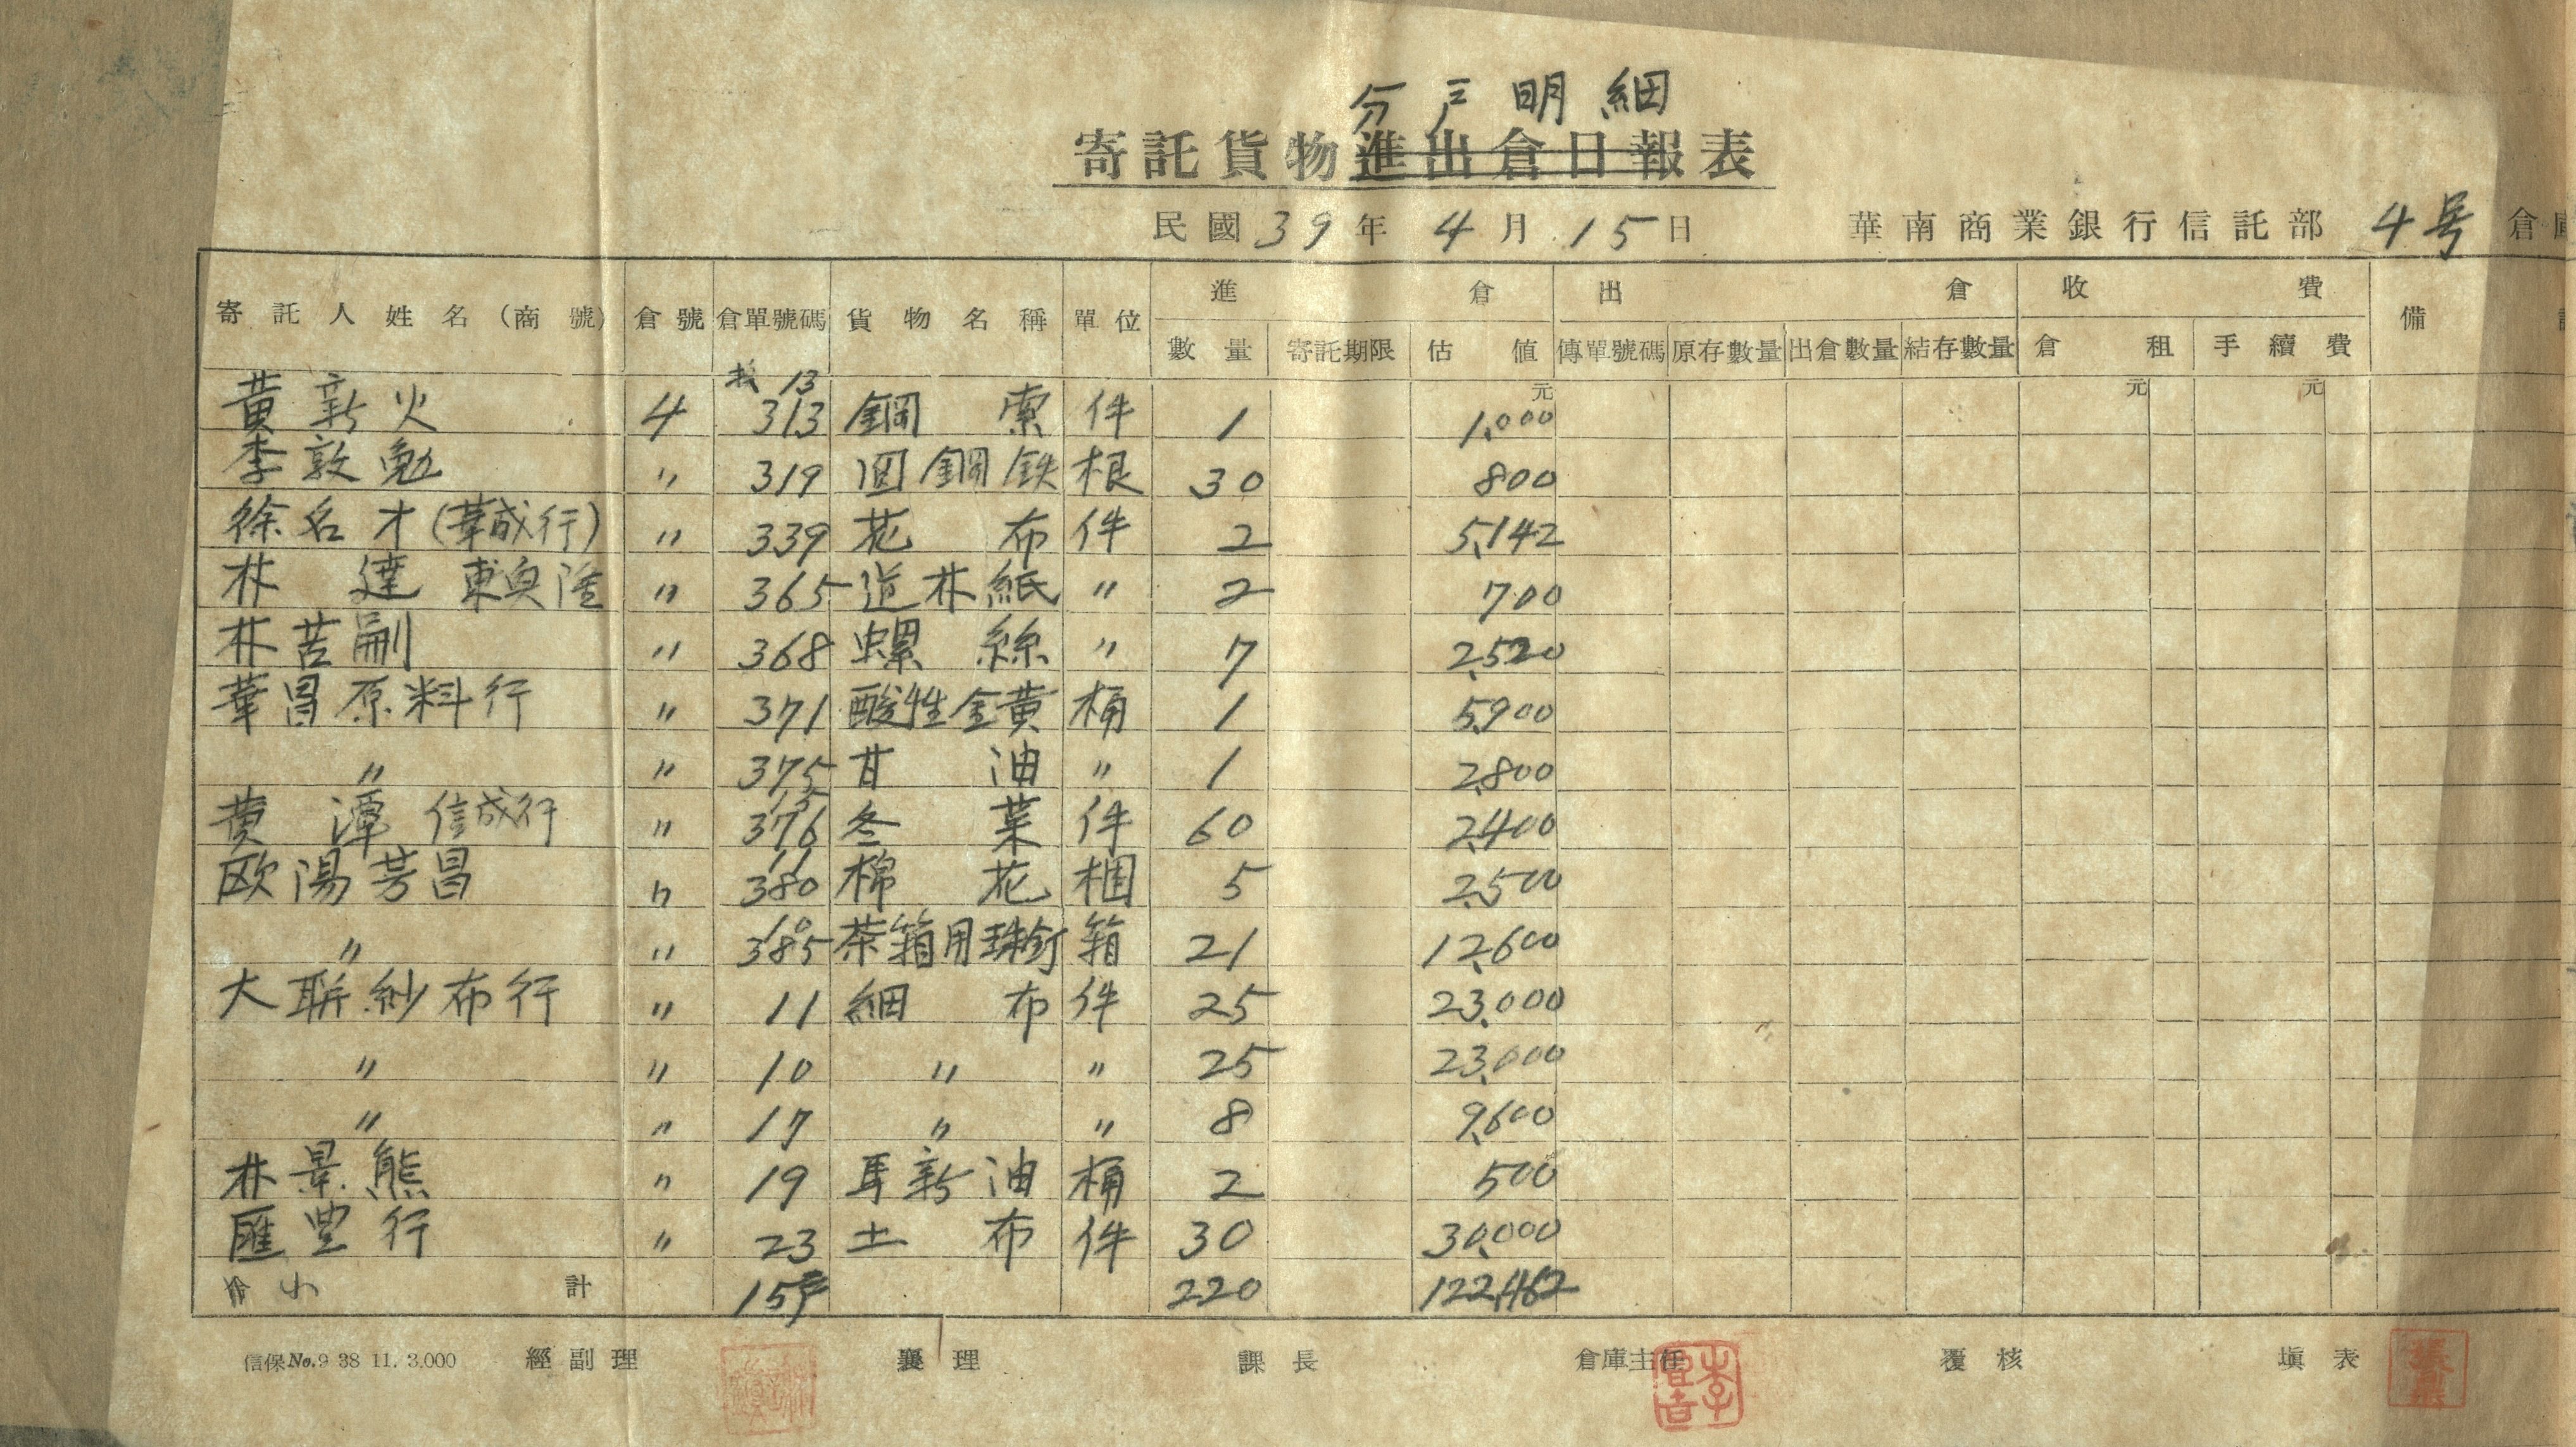 分戶明細
寄託貨物進出倉日報表
民國39年4月15日 華南商業銀行信託部 4号 倉
寄託人姓名（商號） 倉號 倉單號碼 貨物名稱 單位 進倉 出倉 收費 備
數量 寄託期限 估值 傳單號碼 原存數量 出倉數量 結存數量 倉租 手續費
13 元 元 元
黃新火 4 313 鋼索 件 1 1,000
李敦勉 〃 319 圓鋼鉄 根 30 800
徐名才(華成行) 〃 339 花布 件 2 5,142
林達 東奥隆 〃 365 道林紙 〃 2 700
林苦刷 〃 368 螺絲 〃 7 2,520
華昌原料行 〃 371 酸性金黃 桶 1 5,900
〃 〃 375 甘油 〃 1 2,800
黄潭 信成行 〃 376 冬菜 件 60 2,400
欧陽芳昌 〃 380 棉花 梱 5 2,500
〃 〃 385 茶箱用珠釘 箱 21 12,600
大聯紗布行 〃 11 細布 件 25 23,000
〃 〃 10 〃 〃 25 23,000
〃 〃 17 〃 〃 8 9,600
林景熊 〃 19 馬新油 桶 2 500
匯豐行 〃 23 土布 件 30 30,000
小計 15 220 122,462
信保No.9 38 11. 3.000 經副理 襄理 課長 倉庫主任 覆核 塡表